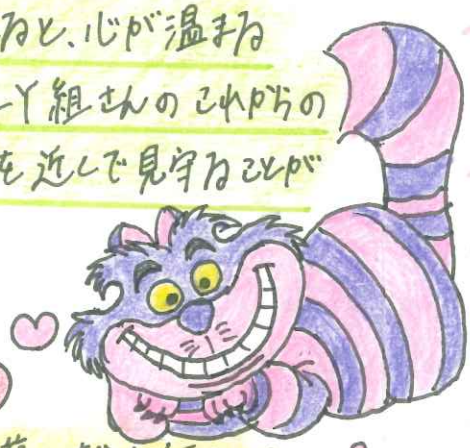 ると、心が温まる
Y組さんのこれからの
を近くで見守ることが